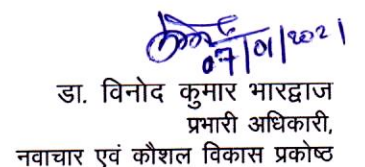 07/01/2021
डा. विनोद कुमार भारद्वाज
प्रभारी अधिकारी,
नवाचार एवं कौशल विकास प्रकोष्ठ